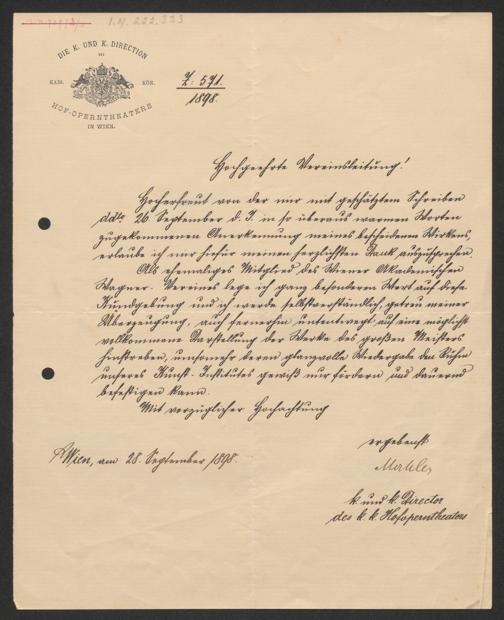 I.N. 222.323
DIE K. UND K. DIRECTION
DES
KAIS. KÖN.
HOF-OPERNTHEATERS
IN WIEN.
Z: 571.
1898.
Hochgeehrte Vereinsleitung!
Hocherfreut von der mir mit geschätztem Schreiben
ddto 26. September d. J. in so überaus warmen Worten
zugekommenen Anerkennung meines bescheidenen Wirkens,
erlaube ich mir hiefür meinen herzlichsten Dank auszusprechen.
Als ehemaliges Mitglied des Wiener Akademischen
Wagner-Vereines lege ich ganz besonderen Wert auf diese
Kundgebung und ich werde selbstverständlich, getreu meiner
Überzeugung, auch fernerhin unentwegt auf eine möglichst
vollkommene Darstellung der Werke des großen Meisters
hinstreben, umsomehr deren glanzvolle Wiedergabe den Ruhm
unseres Kunst-Institutes gewiß nur fördern und dauernd
befestigen kann.
Mit vorzüglicher Hochachtung
ergebenst
Wien, am 28. September 1898.
Mahler
k. und k. Director
des k. k. Hofoperntheaters